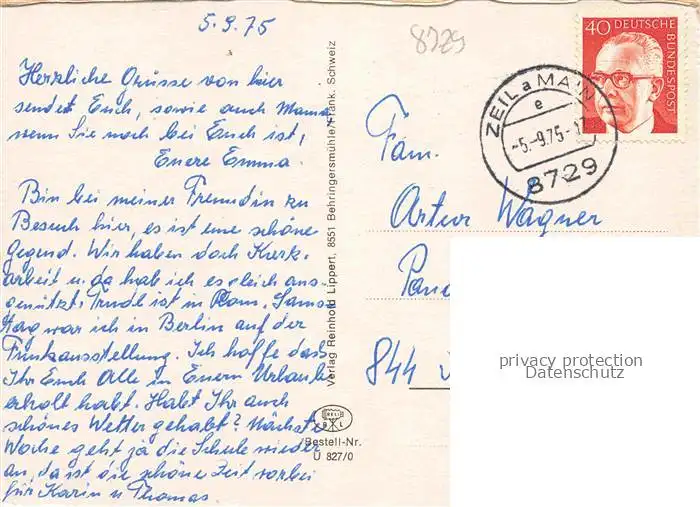 5.9.75
Herzliche Grüsse von hier
sendet Euch, sowie auch Mama
wenn Sie noch bei Euch ist,
Euere Emma.
Bin bei meiner Freundin zu
Besuch hier, es ist eine schöne
Gegend. Wir haben doch Kurz-
arbeit u. da hab ich es gleich aus-
genützt. Trudl ist in Rom. Sams-
tag war ich in Berlin auf der
Funkausstellung. Ich hoffe daß
Ihr Euch Alle in Euern Urlaub
erholt habt. Habt Ihr auch
schönes Wetter gehabt? Nächste
Woche geht ja die Schule wieder
an, da ist die schöne Zeit vorbei
für Karin u Thomas.
Verlag Reinhold Lippert, 8551 Behringersmühle/Fränk. Schweiz
Bestell-Nr.
U 827/0
8729
40 DEUTSCHE BUNDESPOST
ZEIL a MAIN
e
-5.-9.75-17
8729
Fam.
Artur Wagner
844
privacy protection
Datenschutz